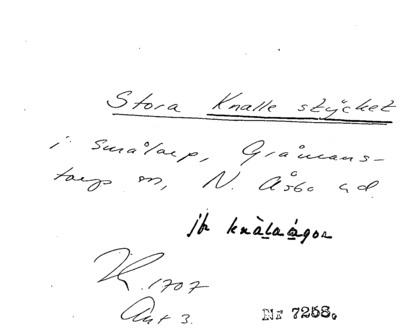 Stora Knalle stycket
i Smålarp, Gråmans-
torps sn, N. Åsbo hd.
jfr knàlaágor
1707
Ant 3.
NR 7258.